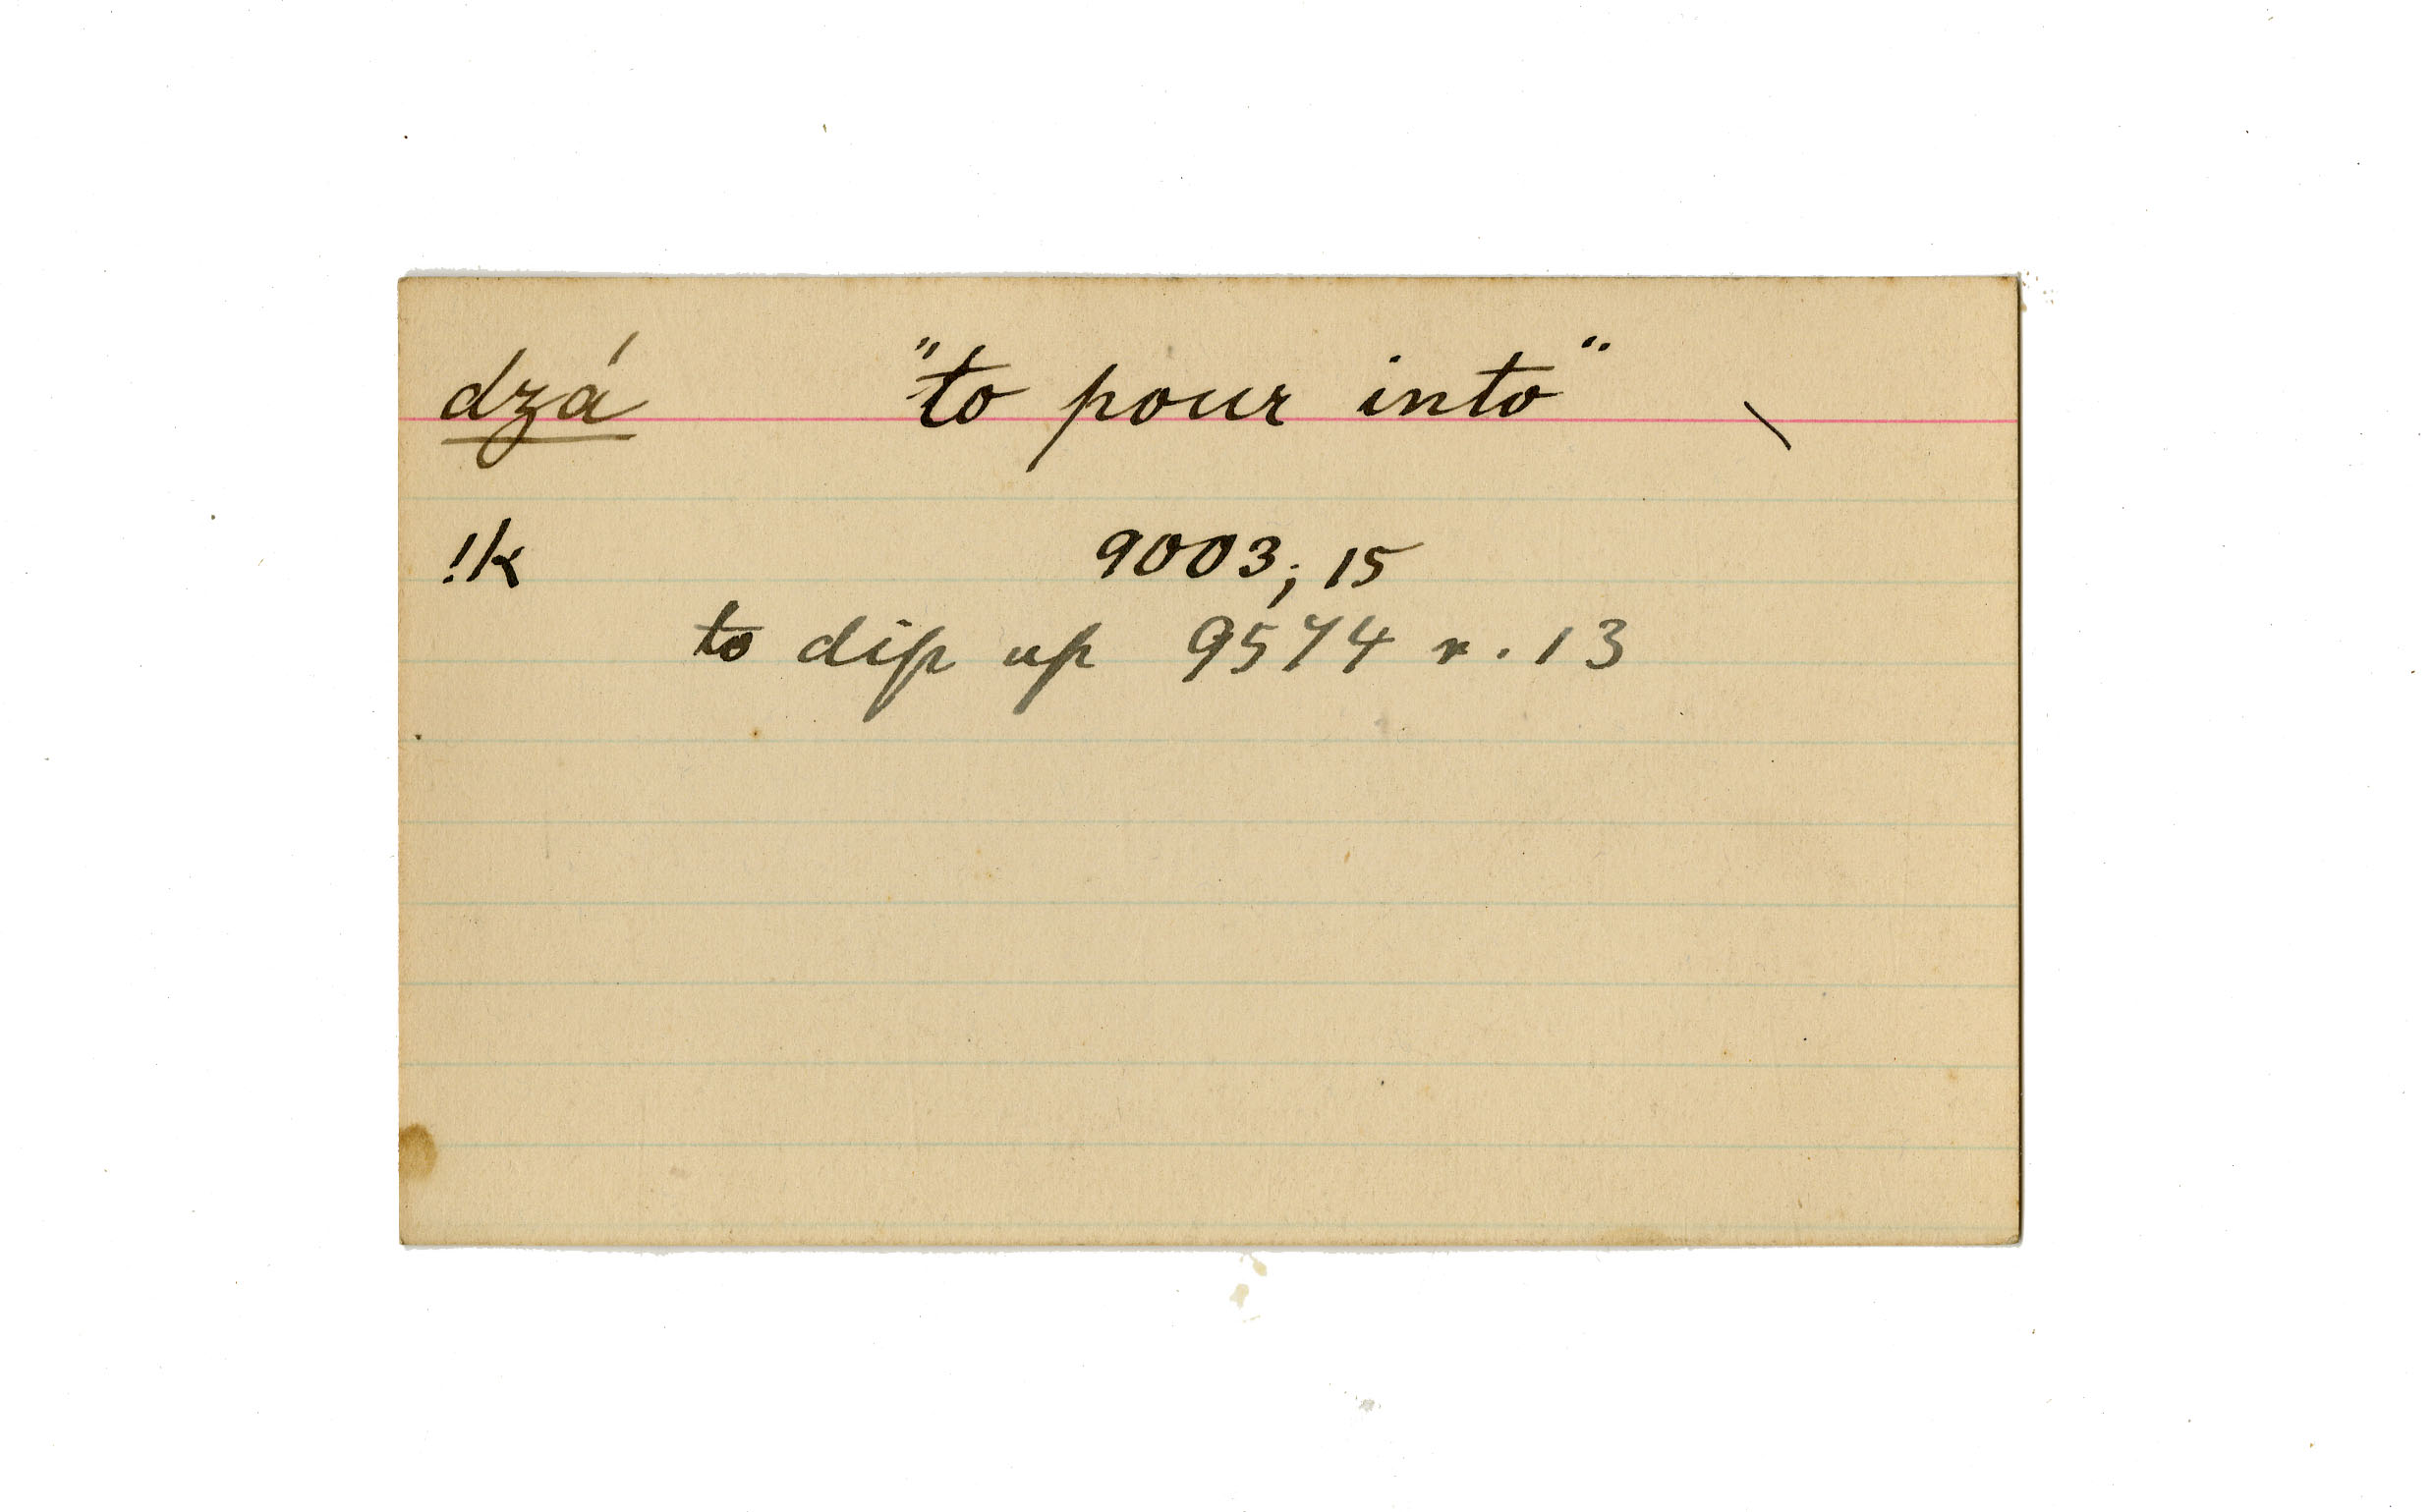 dzá "to pour into" \
!k 9003; 15
to dip up 9574 r. 13